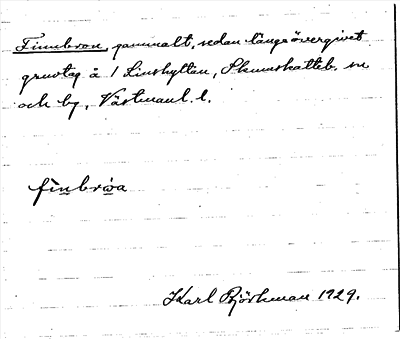 Finnbron, gammalt, sedan länge övergivet
gruvtag å / Linshyttan, Skinnskatteb. sn
och bg, Västmanl. l.
finbrωa
Karl Björkman 1929.